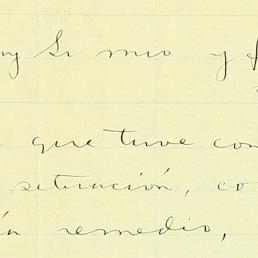 uy Sr mio y
que tuve con
situación, co
ún remedio,